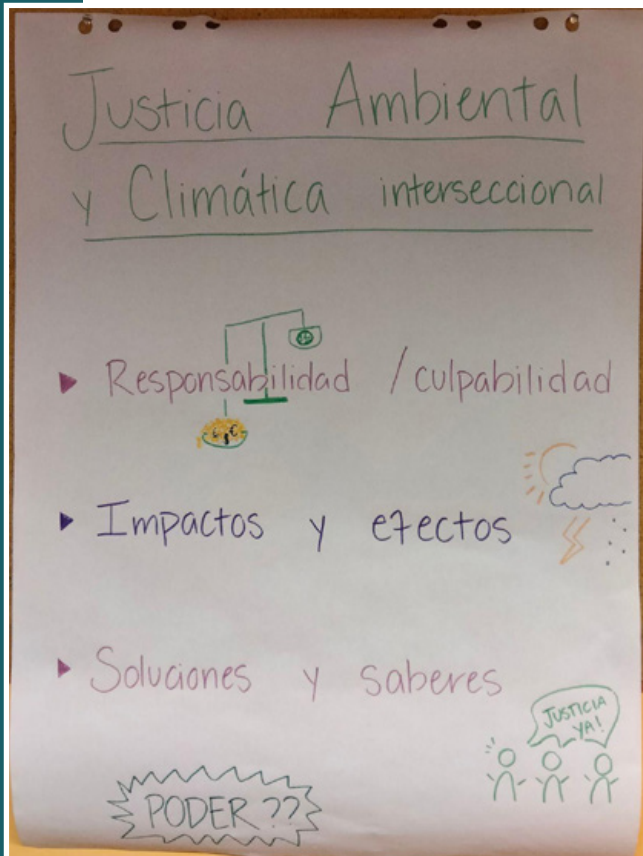 Justicia Ambiental
y Climática interseccional
Responsabilidad / culpabilidad
€ €
Impactos y efectos
Soluciones y saberes
JUSTICIA
YA!
PODER ??